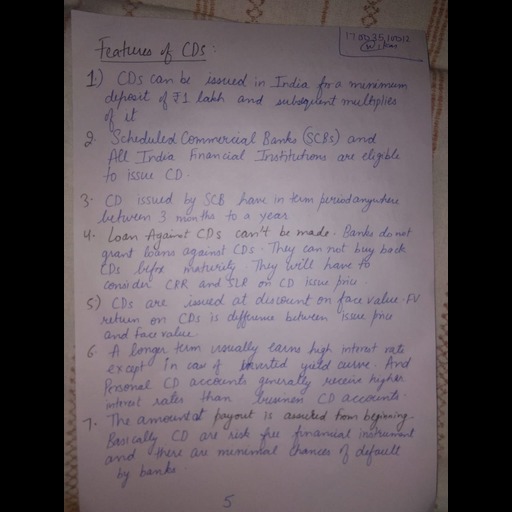 Features of CDs:
1.) CDs can be issued in India for a minimum
deposit of ₹1 lakh and subsequent multiplies
of it
2. Scheduled Commercial Banks (SCBs) and
All India Financial Institutions are eligible
to issue CD.
3. CD issued by SCB have in term period anywhere
between 3 months to a year
4. Loan Against CDs can't be made. Banks do not
grant loans against CDs. They can not buy back
CDs before maturity. They will have to
consider CRR and SLR on CD issue price.
5) CDs are issued at discount on face value. FV
return on CDs is difference between issue price
and face value.
6. A longer term usually earns high interest rate
except in case of inverted yield curve. And
Personal CD accounts generally receive higher
interest rates than business CD accounts.
7. The amount at payout is assured from beginning.
Basically CD are risk free financial instrument
and there are minimal chances of default
by banks
5